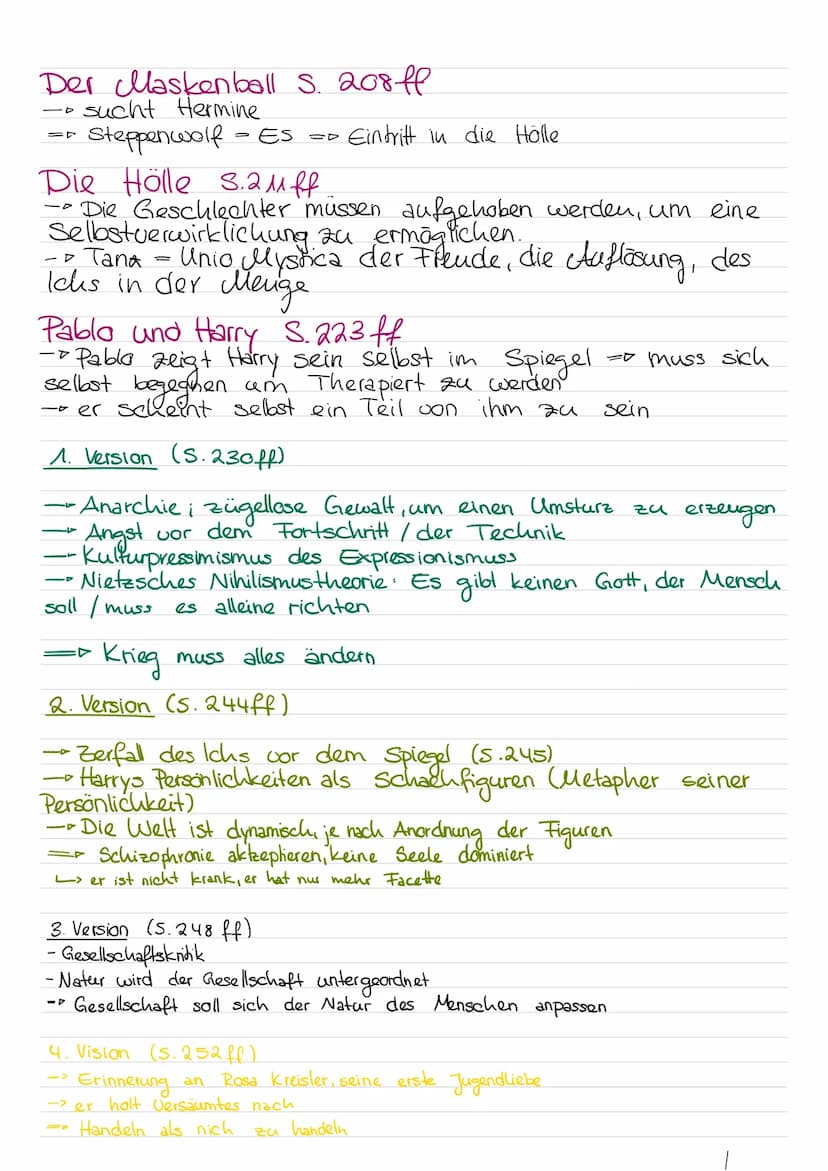 Der Maskenball S. 208ff
→ sucht Hermine
⇒ Steppenwolf = Es ⇒ Eintritt in die Hölle
Die Hölle S.211ff
→ Die Geschlechter müssen aufgehoben werden, um eine
Selbstverwirklichung zu ermöglichen.
→ Tanz = Unio Mystica der Freude, die Auflösung, des
Ichs in der Menge
Pablo und Harry S.223ff
→ Pablo zeigt Harry sein selbst im Spiegel ⇒ muss sich
selbst begegnen um Therapiert zu werden
→ er scheint selbst ein Teil von ihm zu sein
1. Version (S.230ff)
→ Anarchie; zügellose Gewalt, um einen Umsturz zu erzeugen
→ Angst vor dem Fortschritt / der Technik
→ Kulturpressimismus des Expressionismuss
→ Nietzsches Nihilismustheorie: Es gibt keinen Gott, der Mensch
soll / muss es alleine richten
⇒ Krieg muss alles ändern
2. Version (S. 244ff)
→ Zerfall des Ichs vor dem Spiegel (S.245)
→ Harrys Persönlichkeiten als Schachfiguren (Metapher seiner
Persönlichkeit)
→ Die Welt ist dynamisch, je nach Anordnung der Figuren
⇒ Schizophronie aktzeptieren, keine Seele dominiert
↳ er ist nicht krank, er hat nur mehr Facette
3. Version (S.248 ff)
- Gesellschaftskritik
- Natur wird der Gesellschaft untergeordnet
→ Gesellschaft soll sich der Natur des Menschen anpassen
4. Vision (S.252ff)
→ Erinnerung an Rosa Kreisler, seine erste Jugendliebe
→ er holt Versäumtes nach
⇒ Handeln als nich zu handeln